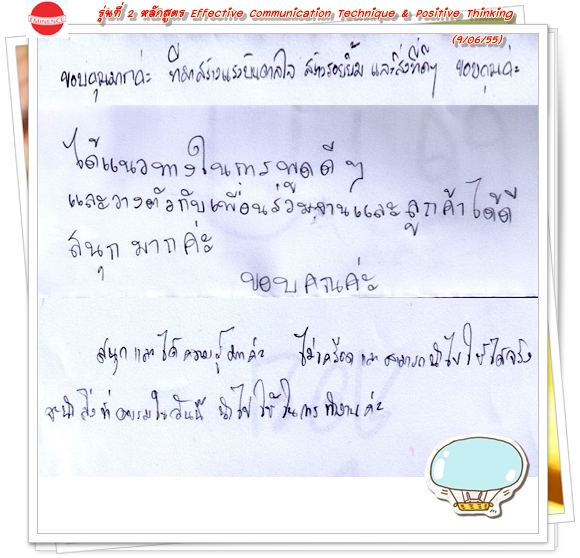 EMINENCE
รุ่นที่ 2 หลักสูตร Effective Communication Technique & Positive Thinking
(9/06/55)
ขอบคุณมากค่ะ ที่สร้างแรงบันดาลใจ สร้างรอยยิ้ม และสิ่งที่ดีๆ ขอบคุณค่ะ
ได้แนวทางในการพูดดีๆ
และวางตัวกับเพื่อนร่วมงานและลูกค้าได้ดี
สนุกมากค่ะ
ขอบคุณค่ะ
สนุก และ ได้ ความรู้ ค่ะ ไม่เครียด และ สามารถ นำไป ใช้ ได้จริง
จะนำ สิ่ง ที่ อบรม ใน วันนี้ นำไป ใช้ ใน การ ทำงาน ค่ะ